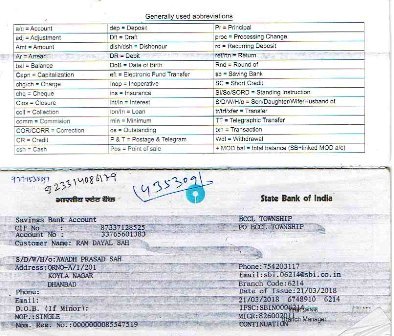 Generally used abbreviations
a/c = Account dep = Deposit Pr = Principal
adj = Adjustment Dft = Draft proc = Processing Change
Amt = Amount dish/dsh = Dishonour rd = Recurring Deposit
Ar = Arrear DR = Debit ret/rtn = Return
bal = Balance DoB = Date of Birth Rnd = Round of
Capn = Capitalization eft = Electronic Fund Transfer sb = Saving Bank
chg/ch = Charge inop = Inoperative SC = Short Credit
chq = Cheque ins = Insurance SI/So/SORD = Standing Instruction
Clos = Closure int/in = Interest S/D/W/H/o = Son/Daughter/Wife/Husband of
coll = Collection lon/ln = Loan tr/trf/xfer = Transfer
comm = Commission min = Minimum TT = Telegraphic Transfer
COR/CORR = Correction os = Outstanding txn = Transaction
CR = Credit P & T = Postage & Telegram Wdl = Withdrawal
csh = Cash Pos = Point of sale + MOD bal = total balance (SB+linked MOD a/c)
923314086129
435309
भारतीय स्टेट बैंक State Bank of India
Savings Bank Account BCCL TOWNSHIP
CIF No : 87337128525 PO BCCL TOWNSHIP
Account No : 33765601383
Customer Name: RAM DAYAL SAH
S/D/W/H/o:AWADH PRASAD SAH
Address:QRNO-A/1/201 Phone:754203117
KOYLA NAGAR Email:sbi.06214@sbi.co.in
DHANBAD Branch Code:6214
Phone: Date of Issue:21/03/2018
Email: 21/03/2018 6748910 6214
D.O.B. (If Minor): IFSC:SBIN0006214
MOP:SINGLE MICR:826002011
Branch Manager
Nom. Reg. No.:0000000085547519 CONTINUATION